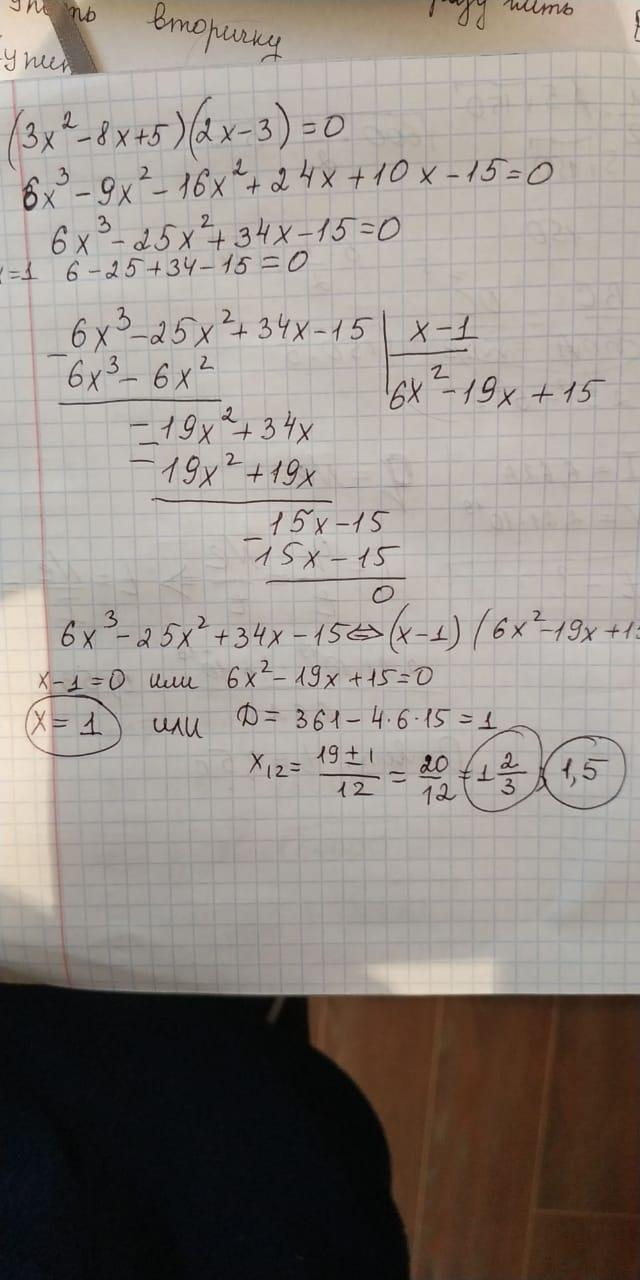 вторичку
(3x²-8x+5)(2x-3)=0
6x³-9x²-16x²+24x+10x-15=0
6x³-25x²+34x-15=0
x=1 6-25+34-15=0
6x³-25x²+34x-15 | x-1
6x³-6x² 6x²-19x+15
-19x²+34x
-19x²+19x
15x-15
15x-15
0
6x³-25x²+34x-15⇔(x-1)(6x²-19x+15
x-1=0 или 6x²-19x+15=0
x=1 или D=361-4·6·15=1
x₁₂=19±1/12=20/12=1 2/3; 1,5